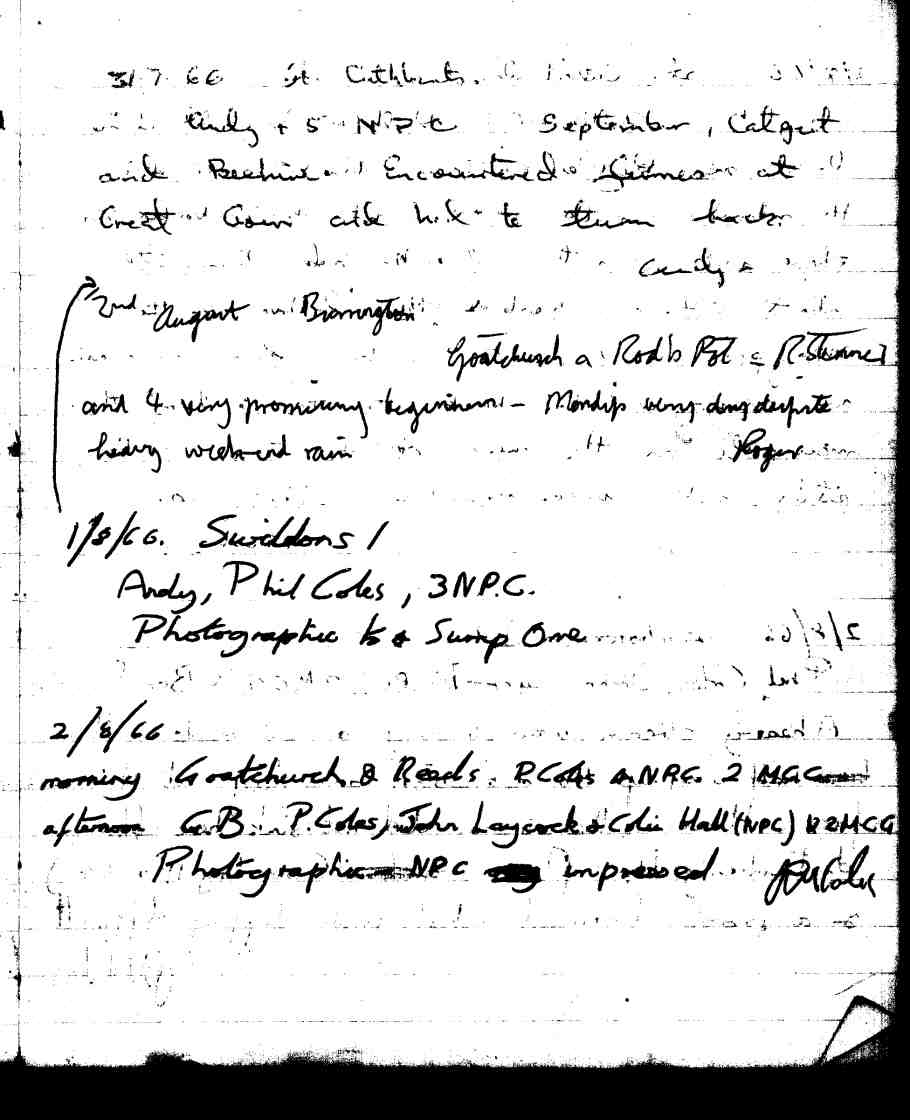 31 7 66 St. Cuthberts.
Andy + 5 NPC September, Catgut
and Beehive. Encountered at
Great Gour and had to turn back.
Andy
2nd August Burrington
Goatchurch & Rod's Pot
and 4 very promising beginners - Mendip very dry despite
heavy weekend rain Roger
1/8/66. Swildons 1
Andy, Phil Coles, 3 NPC.
Photographic to Sump One
2/8/66
morning Goatchurch & Reads. P. Coles 4 NPC. 2 MCG
afternoon G.B. P. Coles, John Laycock & Colin Hall (NPC) & 2 MCG
Photographic NPC impressed.